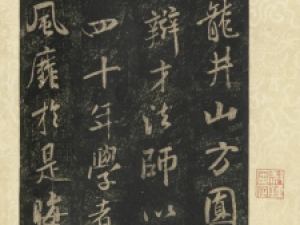 龍井山方圓
辯才法師以
四十年學者
風靡於是晦